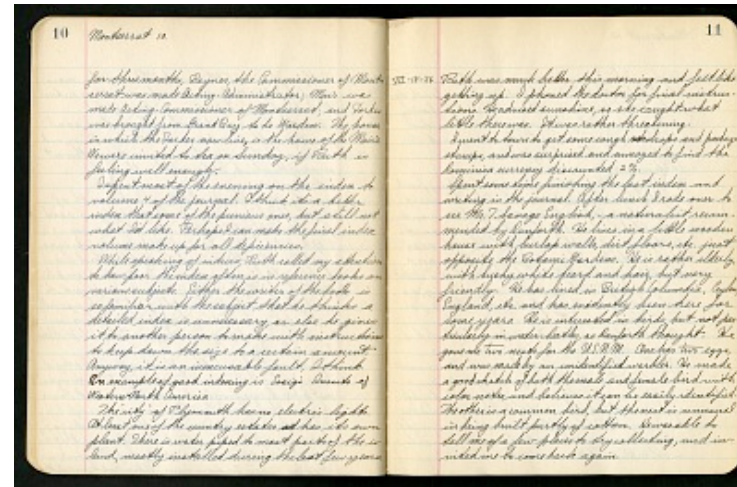 10
Montserrat 10.
for three months, Degner, the Commissioner of Mont-
serrat was made Acting-Administrator; Main was
made Acting-Commissioner of Montserrat, and
was brought from Grand to be Warden. The house
in which the now live, is the house of the
We were invited to tea on Sunday, if Ruth is
feeling well enough.
Spent most of the evening on the index to
volume of the journal. I think its a better
index than some of the previous ones, but still not
what I'd like. Perhaps I can make the final index
volume make up for all deficiencies.
While speaking of indexes, Ruth called my attention
to how poor the index often is in reference books on
various subjects. Either the writer of the book is
so familiar with the subject that he thinks a
detailed index is unnecessary or else he gives
it to another person to make with instructions
to keep down the size to a certain amount.
Anyway, it is an inexcusable fault, I think.
An example of good indexing is of
Western North America
The city of Plymouth has electric light.
At least one of the country estates has its own
plant. There is water piped to most parts of the is-
land, mostly installed during the last few years.
11
Ruth was much better this morning and felt like
getting up. I phoned the doctor for final instruc-
tions. He advised sunshine, so she caught what
little there was. It was rather threatening.
I went to town to get some cough drops and postage
stamps, and was surprised and annoyed to find the
currency discounted 2%.
Spent some time finishing the last index and
writing in the journal. After lunch I rode over to
see Mr. T. Savage English, - a naturalist recom-
mended by Danforth. He lives in a little wooden
house with burlap walls, dirt floors, etc. just
opposite the Botanic Gardens. He is rather elderly
with bushy white beard and hair, but very
friendly. He has lived in British Columbia,
England, etc. and has evidently been here for
some years. He is interested in birds, but not par-
ticularly in water-beetles, as Danforth thought. He
gave me two nests for the U.S.N.M. One has two eggs,
and was made by an unidentified warbler. He made
a good sketch of both the male and female bird with
color notes and believes it can be easily identified.
The other is a common bird, but the nest is unusual
in being built partly of cotton. He was able to
tell me of a few places to try collecting, and in-
vited me to come back again.